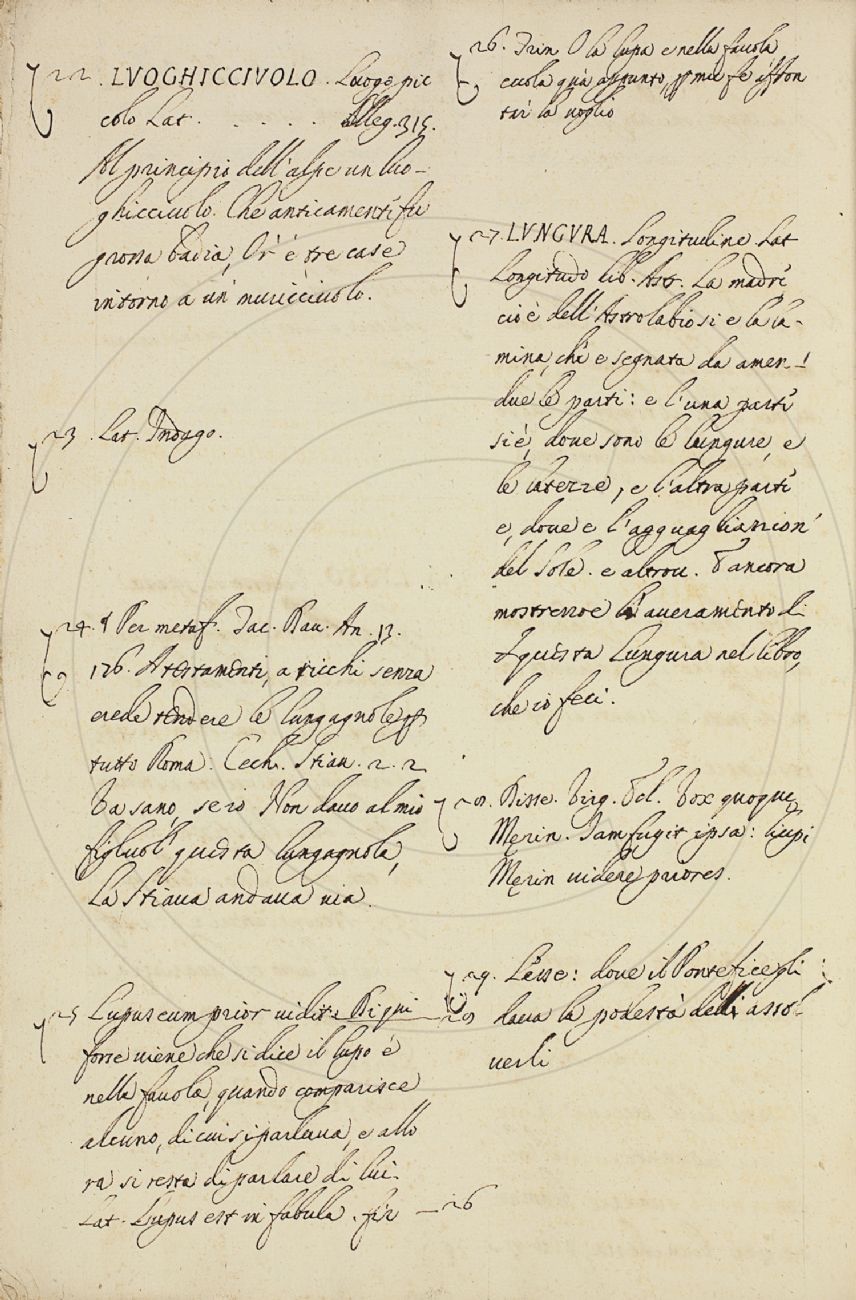 22. LVOGHICCIVOLO. Luogo pic
colo Lat. . . . . . Alleg. 315.
Al principio dell'alpe un luo-
ghicciuolo. Che anticamente fu
grossa badia, Or' è tre case
intorno a un' muricciuolo.
23. Lat. Indago.
24. Per metaf. Iac. Rau. An. 13.
126. A testamenti, a ricchi senza
erede tendere le lungagnole p
tutto Roma. Cech. Stiau. 2. 2
Va sano, se io Non dauo al mio
figliuol questa lungagnola,
La Stiaua andaua uia.
25 Lupus eum prior uidit. Di qui
forse uiene che si dice il lupo è
nella fauola, quando comparisce
alcuno, di cui si parlaua, e allo
ra si resta di parlare di lui.
Lat. Lupus est in fabula. fir — 26
26. Trin. O la lupa e nella fauola
eccola quà appunto,
tar la uoglio
27. LVNGVRA. Longitudine Lat
Longitudo lib. Astr. La madre
cioè dell'Astrolabio si e la la-
mina, che e segnata da amen-
due le parti: e l'una parte
si è, doue sono le lungure, e
le laterre, e l'altra parte
e, doue e l'agguagliazion'
del Sole. e altrou. E ancora
mosterroe l'aueramento di
questa lungura nel libro,
che io feci.
28. Disse. Virg. Egl. Vox quoque
Merin. Iam fugit ipsa: lupi
Merin uidere priores.
29. Lesse: doue il Pontefice gli
daua la podestà dell' assol-
uerli